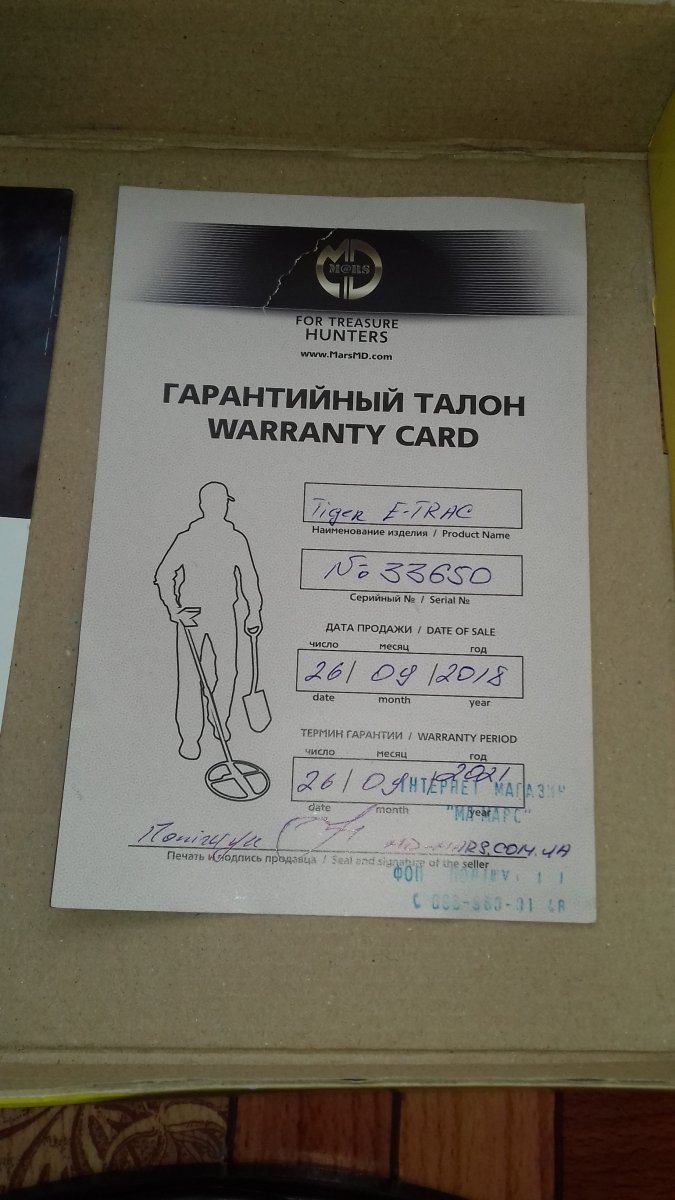 MD
M@RS
FOR TREASURE
HUNTERS
www.MarsMD.com
ГАРАНТИЙНЫЙ ТАЛОН
WARRANTY CARD
Tiger E-TRAC
Наименование изделия / Product Name
№ 33650
Серийный № / Serial №
ДАТА ПРОДАЖИ / DATE OF SALE
число месяц год
26 / 09 / 2018
date month year
ТЕРМИН ГАРАНТИИ / WARRANTY PERIOD
число месяц год
26 / 09 / 2021
date month year
ІНТЕРНЕТ МАГАЗИН
"МД-МАРС"
MD-MARS.COM.UA
Печать и подпись продавца / Seal and signature of the seller
ФОП